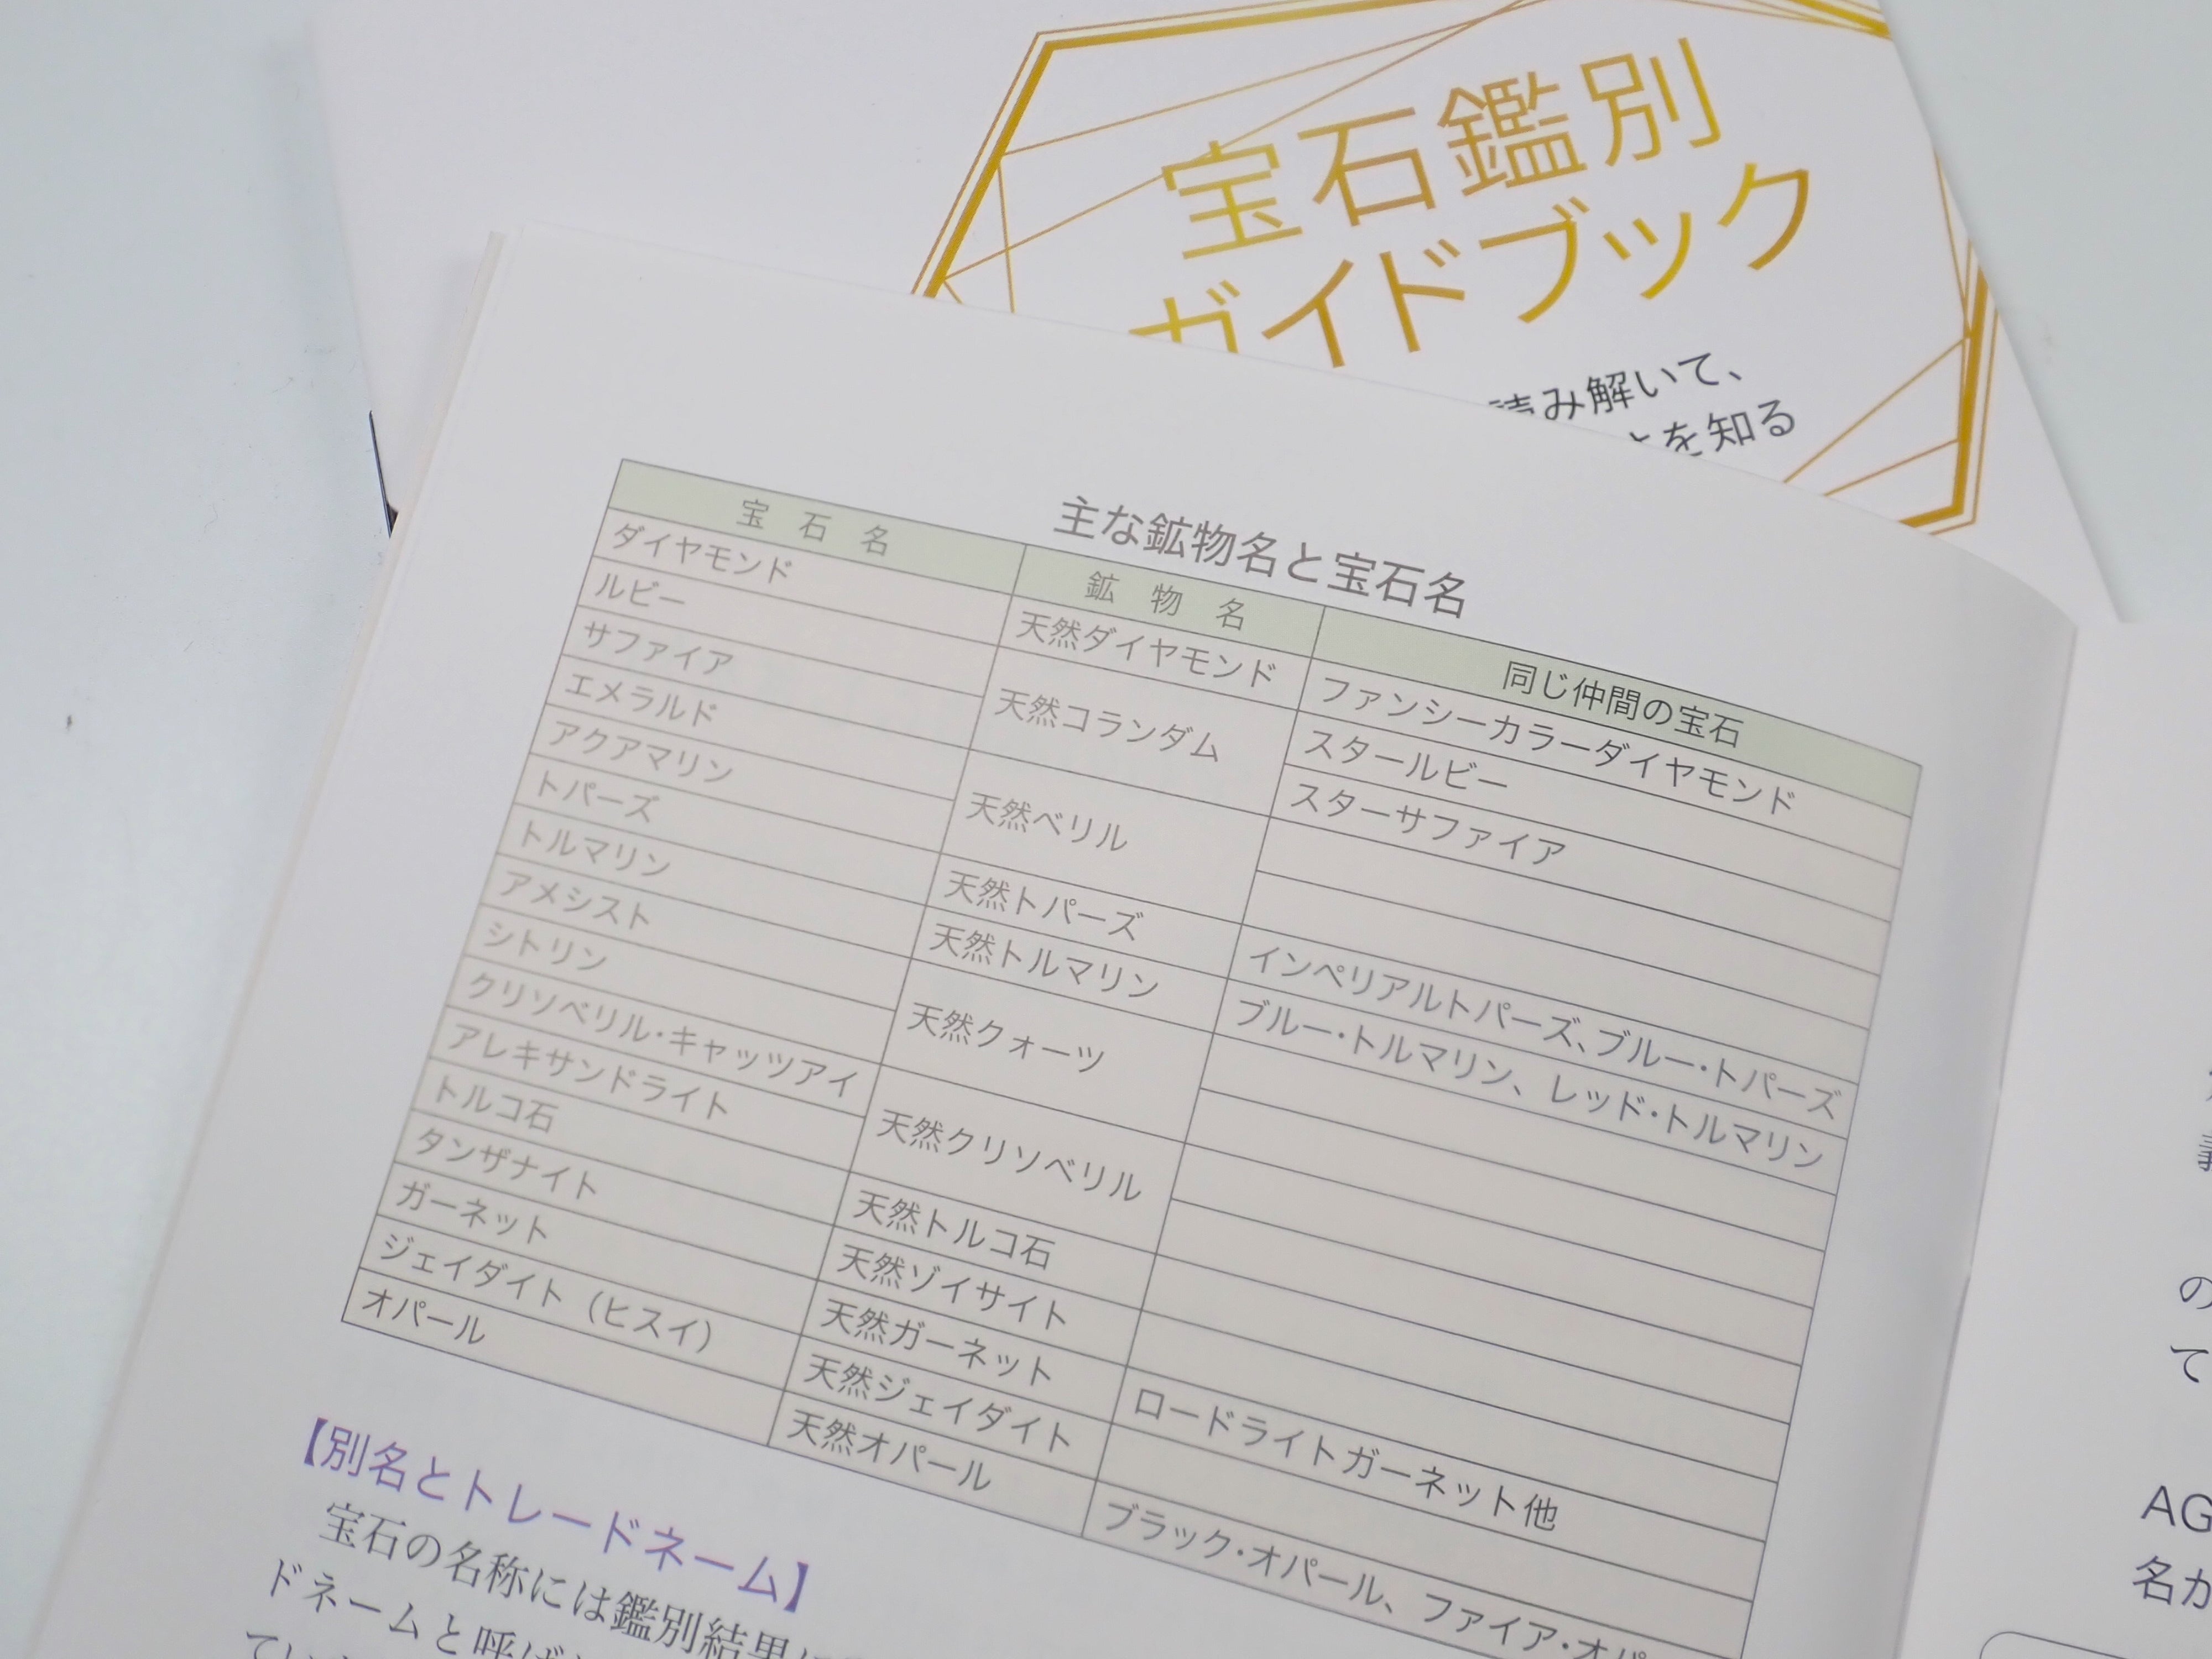 宝石鑑別
ガイドブック
読み解いて、
を知る
主な鉱物名と宝石名
宝石名 鉱物名 同じ仲間の宝石
ダイヤモンド 天然ダイヤモンド ファンシーカラーダイヤモンド
ルビー 天然コランダム スタールビー
サファイア スターサファイア
エメラルド 天然ベリル
アクアマリン
トパーズ 天然トパーズ インペリアルトパーズ、ブルー・トパーズ
トルマリン 天然トルマリン ブルー・トルマリン、レッド・トルマリン
アメシスト 天然クォーツ
シトリン
クリソベリル・キャッツアイ 天然クリソベリル
アレキサンドライト
トルコ石 天然トルコ石
タンザナイト 天然ゾイサイト
ガーネット 天然ガーネット ロードライトガーネット他
ジェイダイト（ヒスイ） 天然ジェイダイト
オパール 天然オパール ブラック・オパール、ファイア・オパ
【別名とトレードネーム】
宝石の名称には鑑別結果に
ドネームと呼ば
てい
の
て
AG
名か